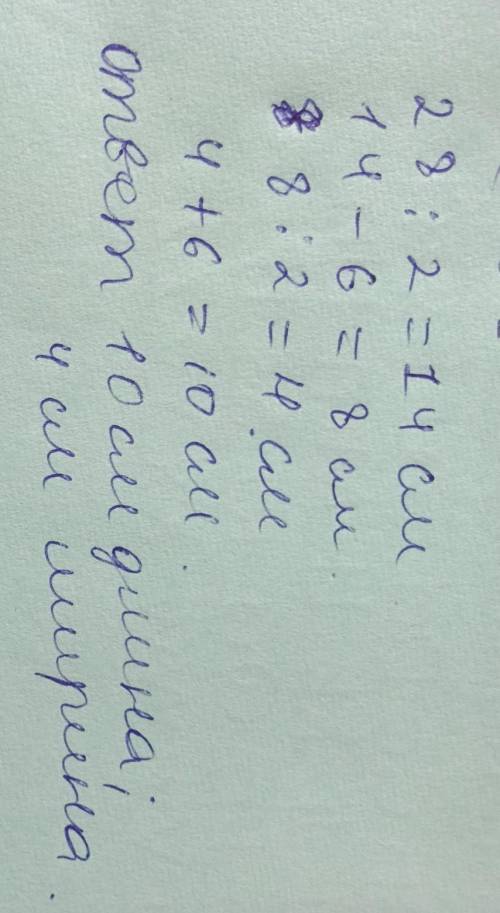 28 : 2 = 14 см
14 - 6 = 8 см
8 : 2 = 4 см
4 + 6 = 10 см.
ответ 10 см длина;
4 см ширина.